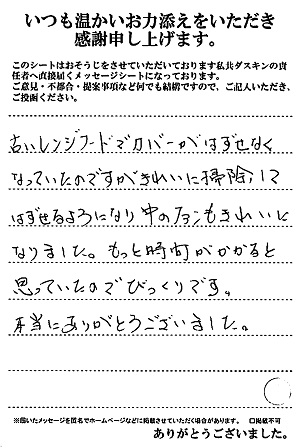 いつも温かいお力添えをいただき
感謝申し上げます。
このシートはおそうじをさせていただいております私共ダスキンの責
任者へ直接届くメッセージシートになっております。
ご意見・不都合・提案事項など何でも結構ですので、ご記入いただき、
ご投函ください。
古いレンジフードでカバーがはずせなく
なっていたのですがきれいに掃除して
はずせるようになり中のファンもきれいに
なりました。もっと時間がかかると
思っていたのでびっくりです。
本当にありがとうございました。
※届いたメッセージを匿名でホームページなどに掲載させていただく場合があります。 □掲載不可
ありがとうございました。